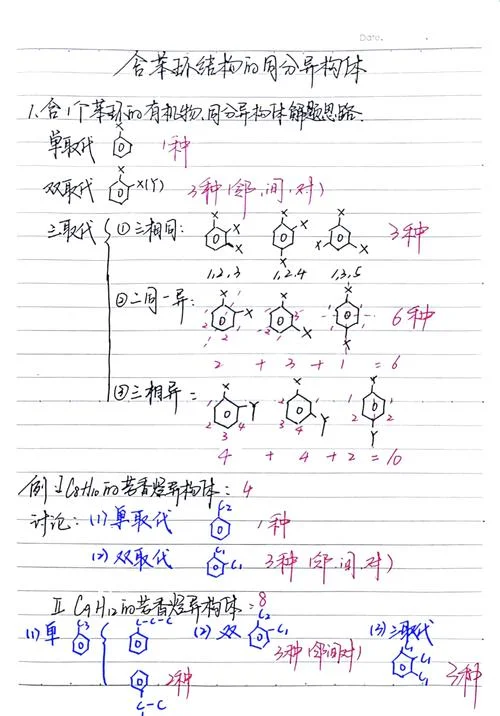 Date.
含苯环结构的同分异构体
1.含1个苯环的有机物、同分异构体解题思路.
单取代 X 1种
双取代 X X(Y) 3种(邻、间、对)
三取代 ①三相同: X X X X X X X X X 3种
1,2,3 1,2,4 1,3,5
②二同一异: X X X X X X 6种
2 + 3 + 1 = 6
③三相异: X Y X Y X Y 10种
4 + 4 + 2 = 10
例 I C8H10的芳香烃异构体: 4
讨论: (1) 单取代 C2 1种
(2) 双取代 C1 C1 3种(邻、间、对)
II C9H12的芳香烃异构体: 8
(1) 单 C3 C-C-C (2) 双 C2 C1 3种(邻间对) (3) 三取代 C1 C1 C1 3种
C-C 2种